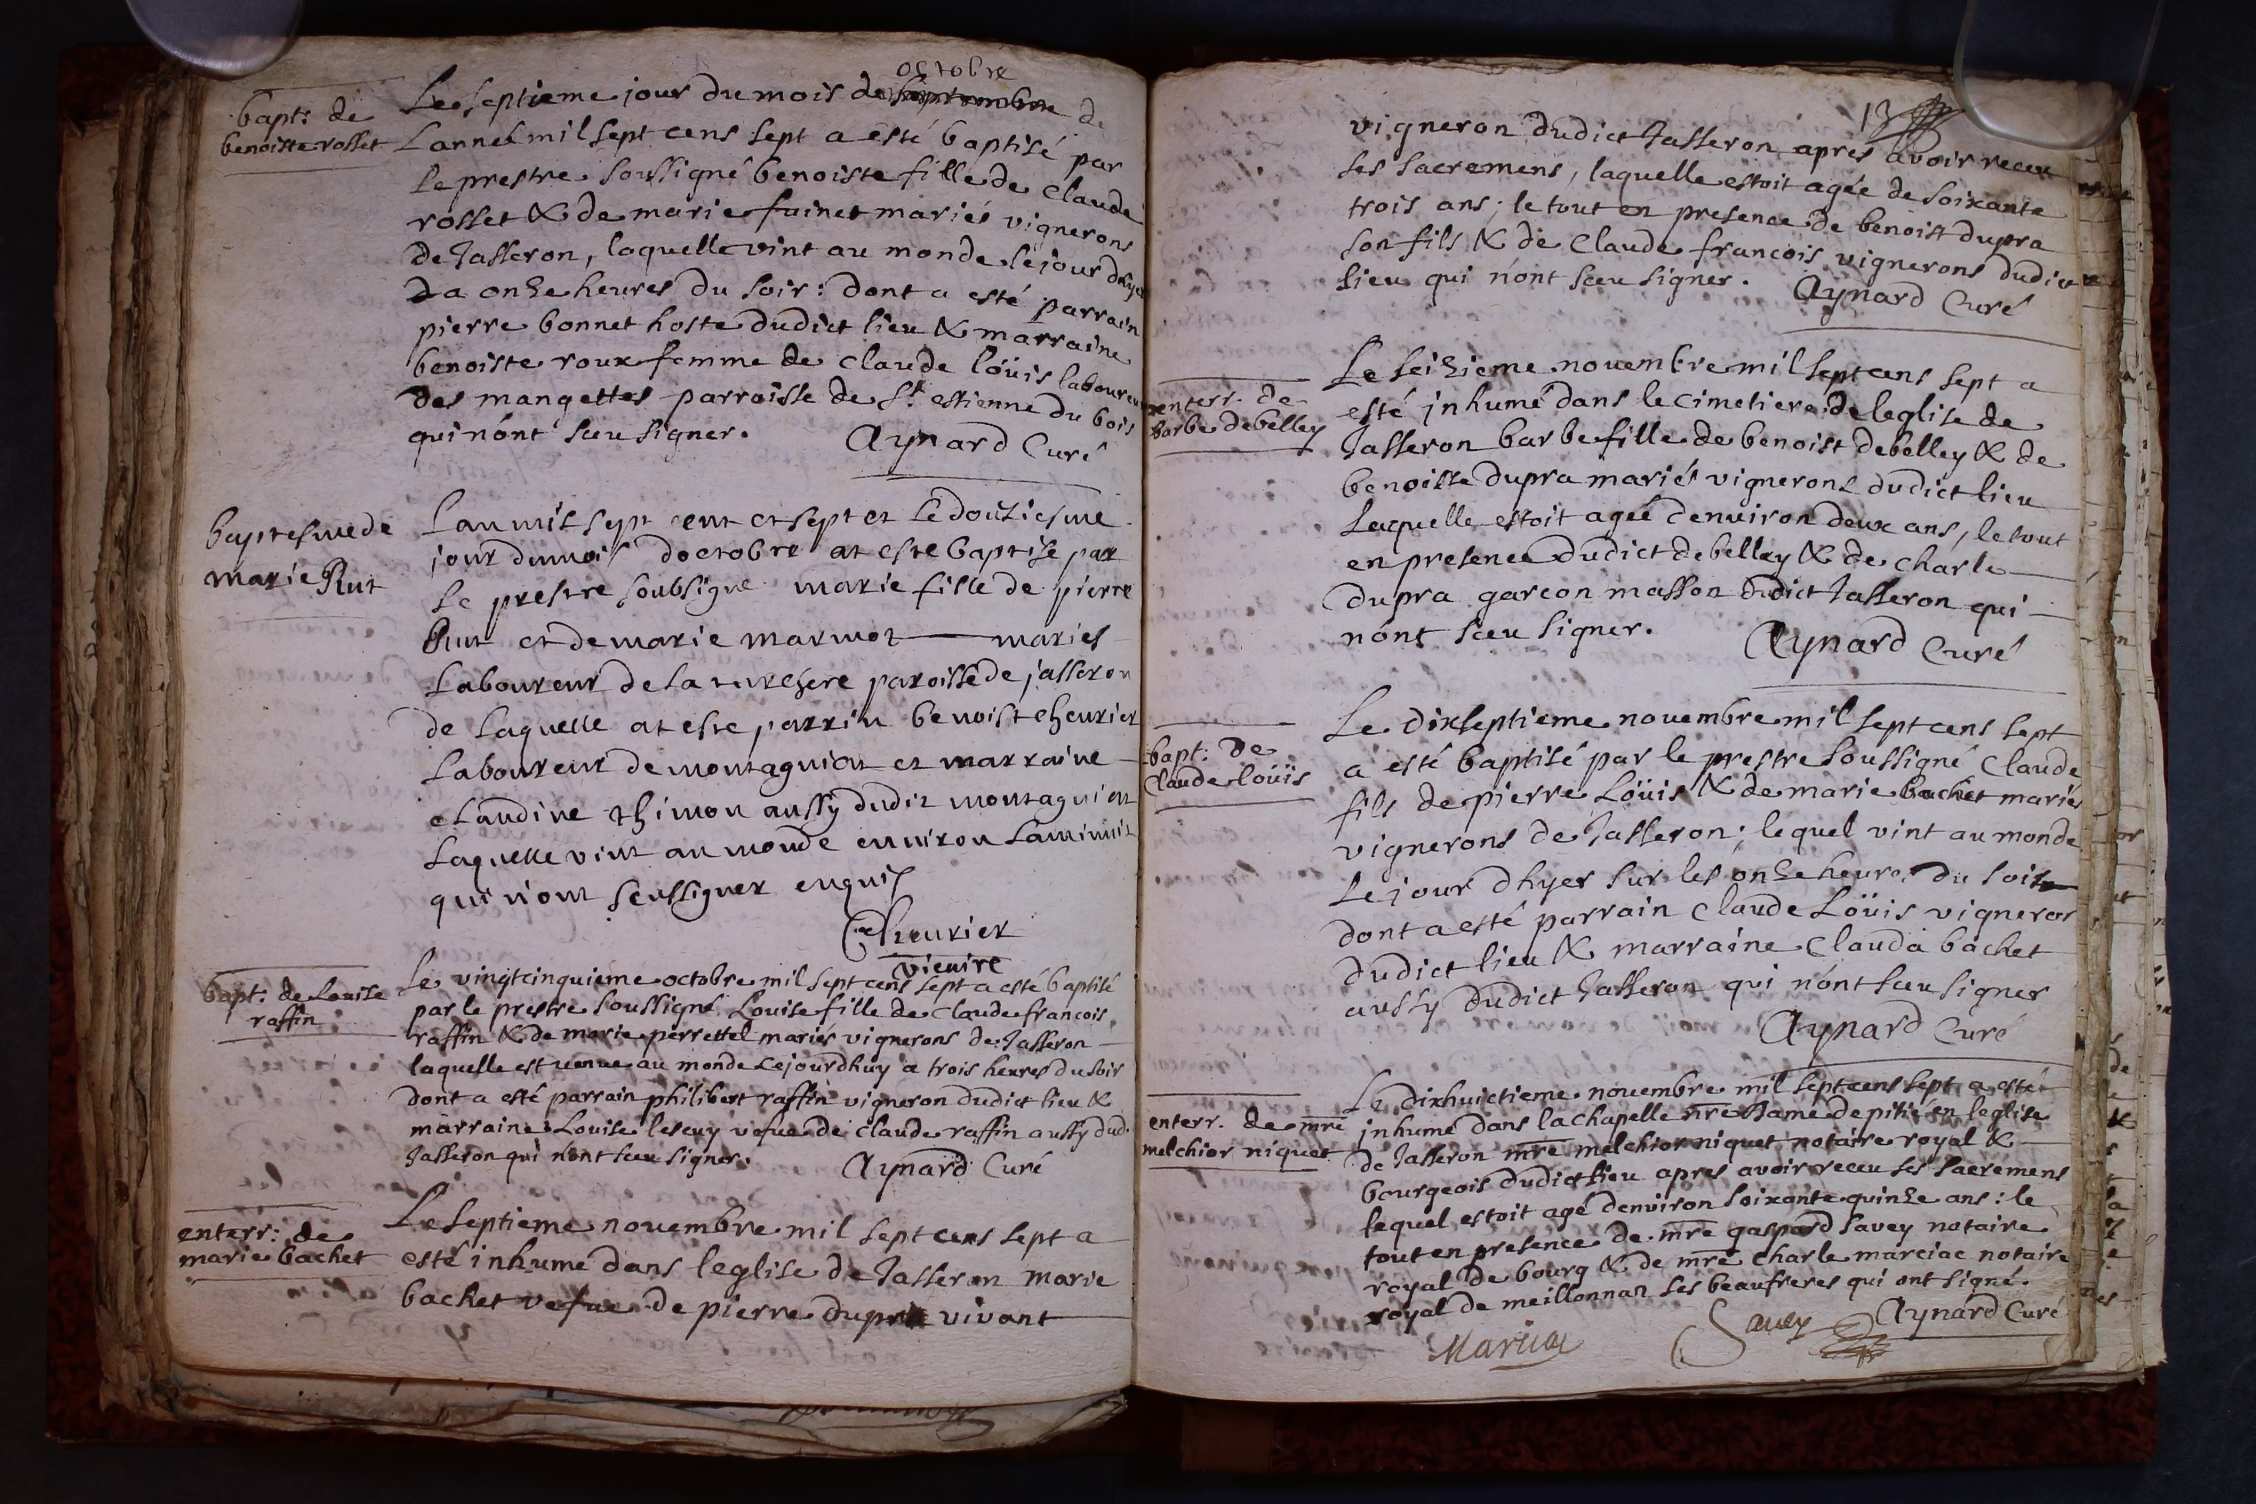 octobre
bapt: de
benoiste rosset
Le septieme jour du mois de septembre de
Lannee mil sept cens sept a esté baptisé par
le prestre soussigné benoiste fille de claude
rosset & de marie fuinet mariés vignerons
de Jasseron, laquelle vint au monde le jour dhyer
a onze heures du soir: dont a esté parrain
pierre bonnet hoste dudict lieu & marraine
benoiste roux femme de claude loüis laboureur
des mangettes parroisse de St estienne du bois
qui nónt sceu signer. Aynard Curé
baptesme de
marie Rut
Lan mil sept cent et sept et le douziesme
jour du mois doctobre at este baptise par
Le prestre soubsigne marie fille de pierre
Rut et de marie marmot mariés
Laboureur de la paroisse de jasseron
de laquelle at este parrin benoist cheurier
Laboureur de montagniat et marraine
claudine thimon aussy dudit montagniat
Laquelle vint au monde environ laminuit
qui nont sceu signer enquis
Cheurier
vicaire
bapt: de Louise
raffin
Le vingtcinquieme octobre mil sept cens sept a esté baptisé
par le prestre soussigné Louise fille de claude francois
raffin & de marie perrettel mariés vignerons de Jasseron
laquelle est venue au monde cejourdhuy a trois heures du soir
dont a esté parrain philibert raffin vigneron dudict lieu &
marraine Louise lescuy vefue de claude raffin aussy dud.
Jasseron qui nónt sceu signer. Aynard Curé
enterr: de
marie bachet
Le septieme novembre mil sept cens sept a
esté inhumé dans leglise de Jasseron marie
bachet vefue de pierre dupra vivant
13
vigneron dudict Jasseron apres avoir receu
ses sacremens, laquelle estoit agée de soixante
trois ans; le tout en presence de benoist dupra
son fils & de claude francois vignerons dudict
lieu qui nónt sceu signer. Aynard Curé
enterr. de
barbe debelley
Le seizieme novembre mil sept cens sept a
esté inhumé dans le cimetiere de leglise de
Jasseron barbe fille de benoist debelley & de
benoiste dupra mariés vignerons dudict lieu
Laquelle estoit agée denviron deux ans, le tout
en presence dudict debelley & de charle
dupra garcon masson dudict Jasseron qui
nónt sceu signer. Aynard Curé
bapt: de
claude loüis
Le dixseptieme novembre mil sept cens sept
a esté baptisé par le prestre soussigné claude
fils de pierre Loüis & de marie bachet mariés
vignerons de Jasseron; lequel vint au monde
Le jour dhyer sur les onze heures du soir
dont a esté parrain claude Loüis vigneron
dudict lieu & marraine clauda bachet
aussy dudict Jasseron qui nónt sceu signer
Aynard Curé
enterr. de mre
melchior niquet
Le dixhuictieme novembre mil sept cens sept a esté
inhumé dans la chapelle nre dame de pitié en leglise
de Jasseron mre melchior niquet notaire royal &
bourgeois dudict lieu apres avoir receu ses sacremens
lequel estoit agé denviron soixante quinze ans: le
tout en presence de mre gaspard savey notaire
royal de bourg & de mre charle marciac notaire
royal de meillonnaz ses beaufreres qui ont signé.
Savey Aynard Curé